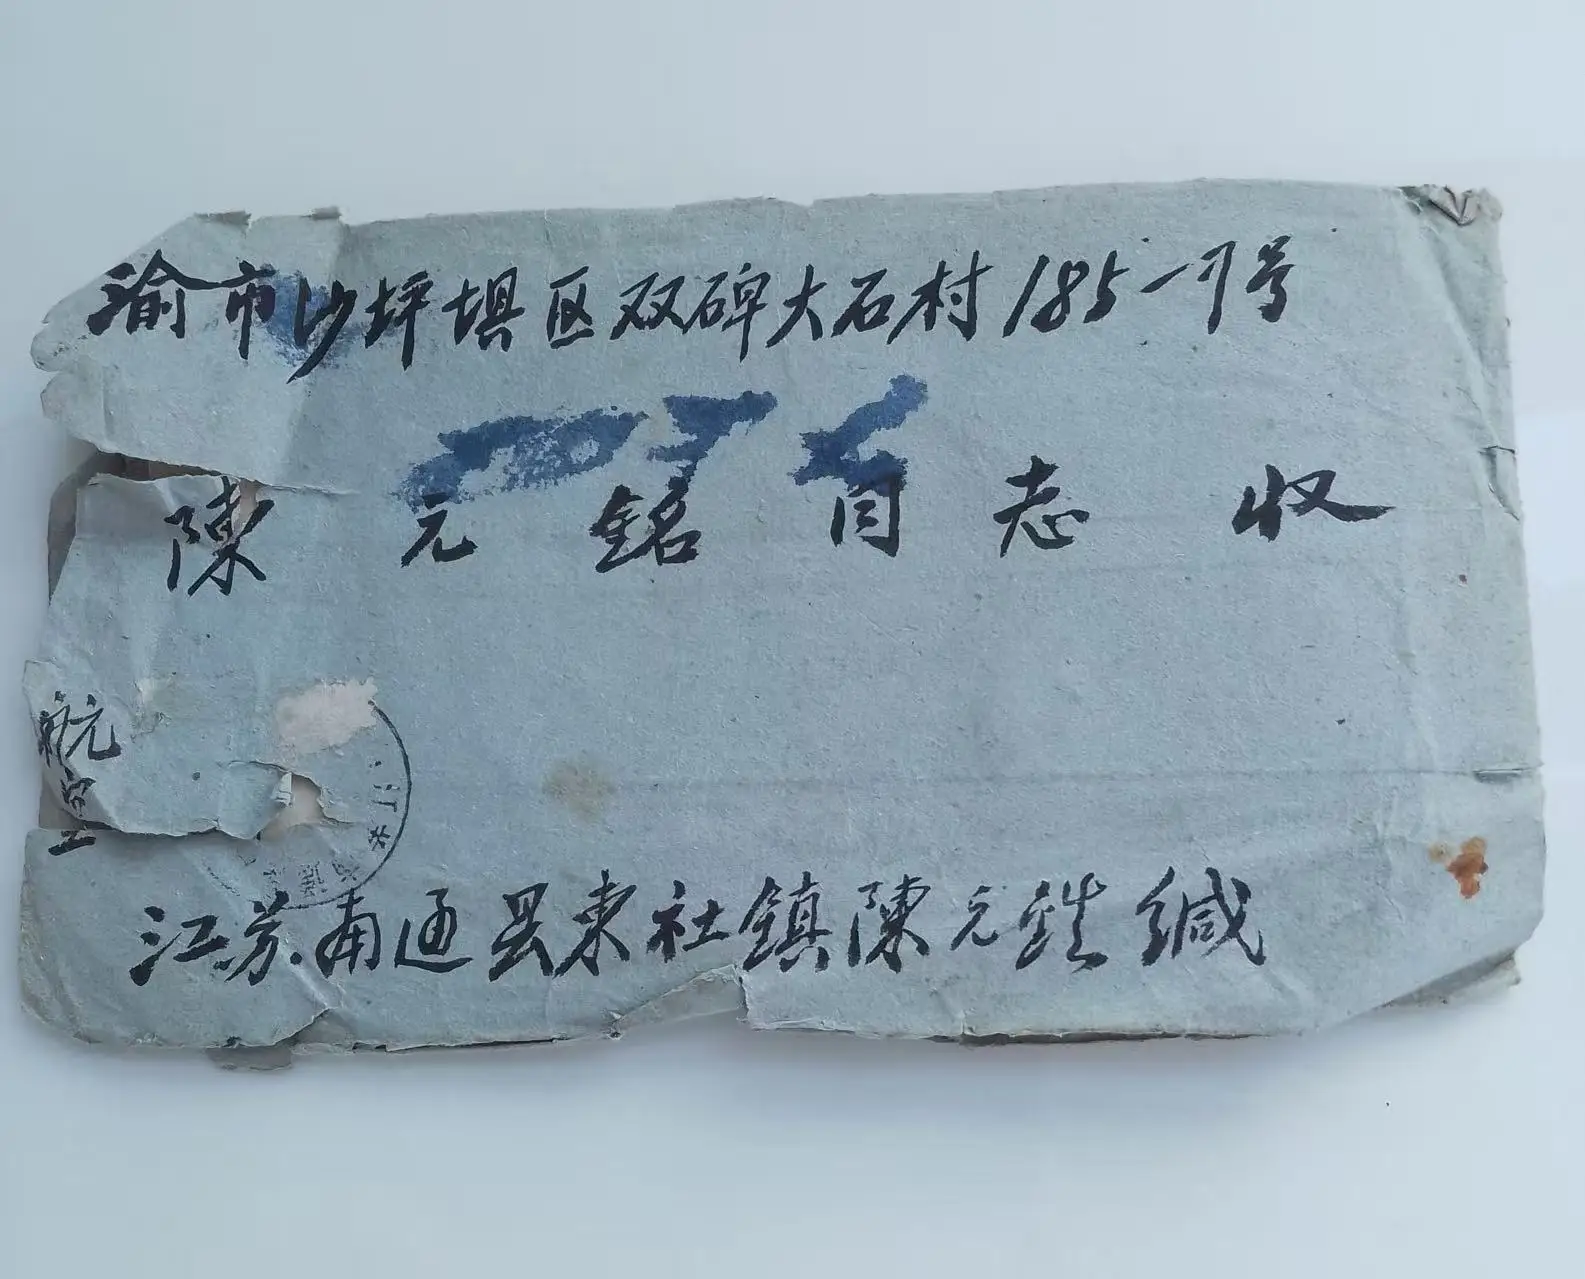 渝市沙坪垻区双碑大石村185-7号
陳元銘同志收
航空
江苏南通县東社镇陳元 缄
江